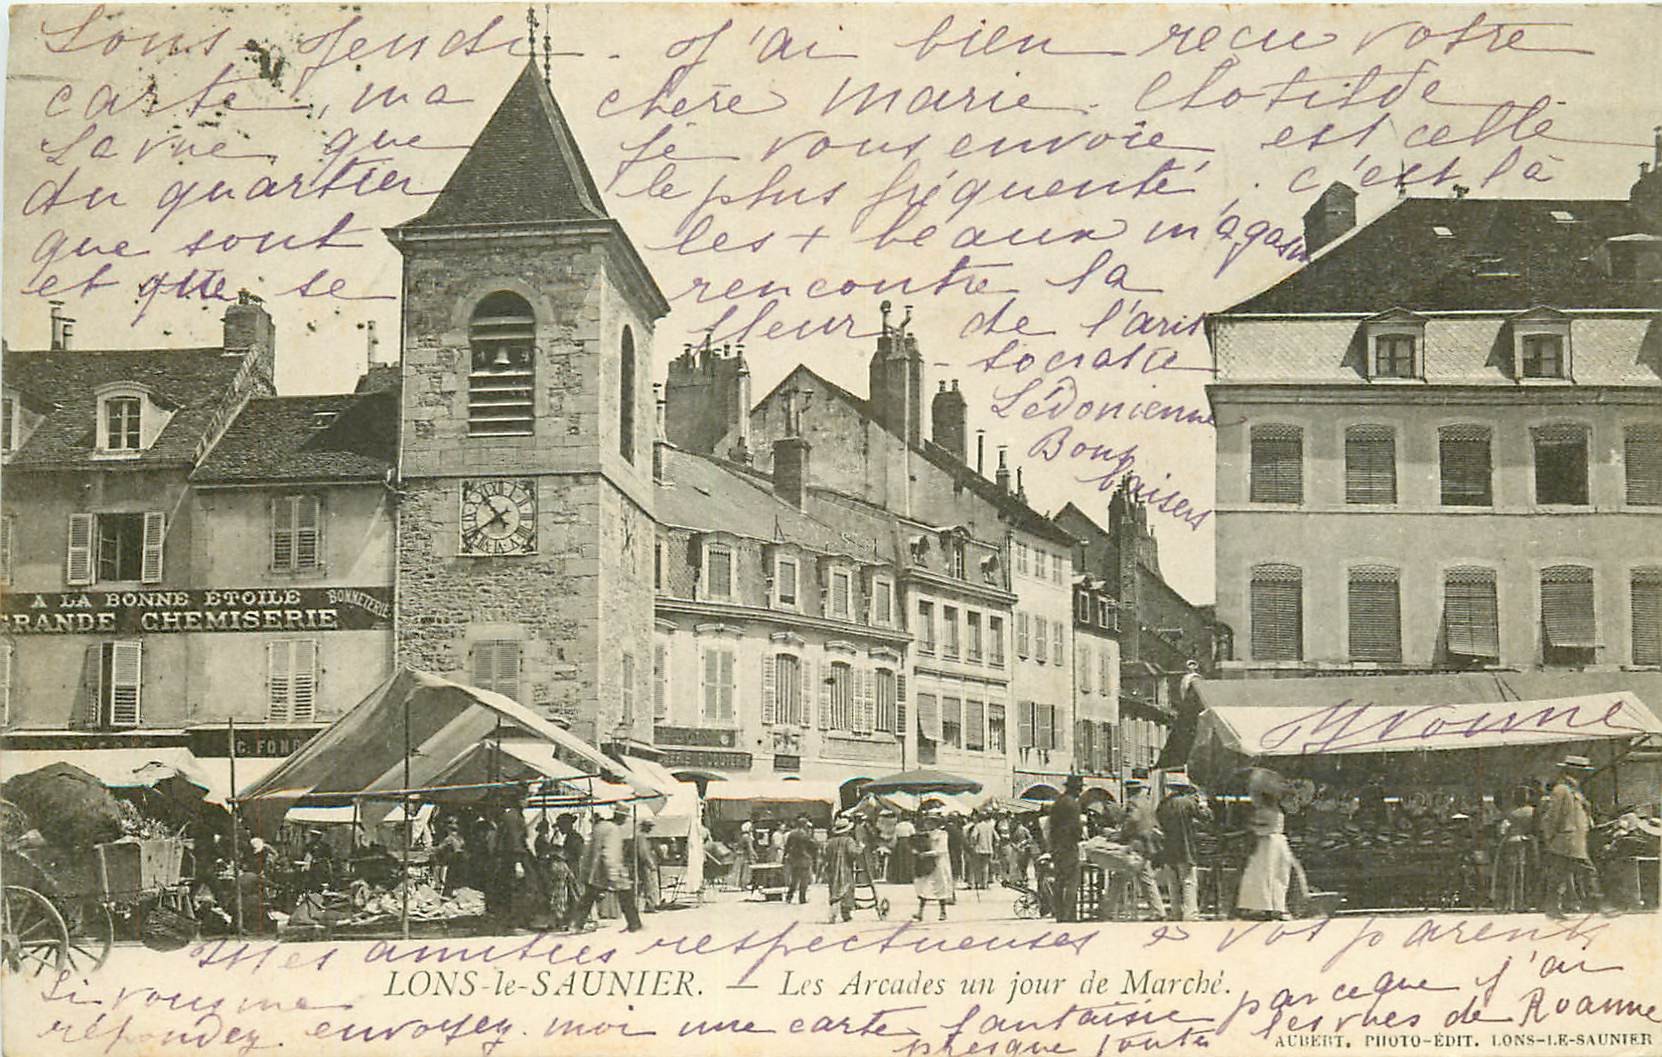 Lons Jeudi. J'ai bien reçu votre
carte, ma chère Marie. Clotilde
La vue que je vous envoie est celle
du quartier le plus fréquenté. c'est là
que sont les + beaux magasins
et que se rencontre la
fleur de l'aris
tocratie
Lédonienne
Bons
baisers
A LA BONNE ETOILE
BONNETERIE
GRANDE CHEMISERIE
C. FON
Yvonne
Mes amitiées respectueuses à vos parents
LONS-le-SAUNIER. — Les Arcades un jour de Marché.
Si vous me
répondez. envoyez. moi une carte fantaisie parceque j'ai
presque toutes les vues de Roanne
AUBERT, PHOTO-ÉDIT. LONS-LE-SAUNIER